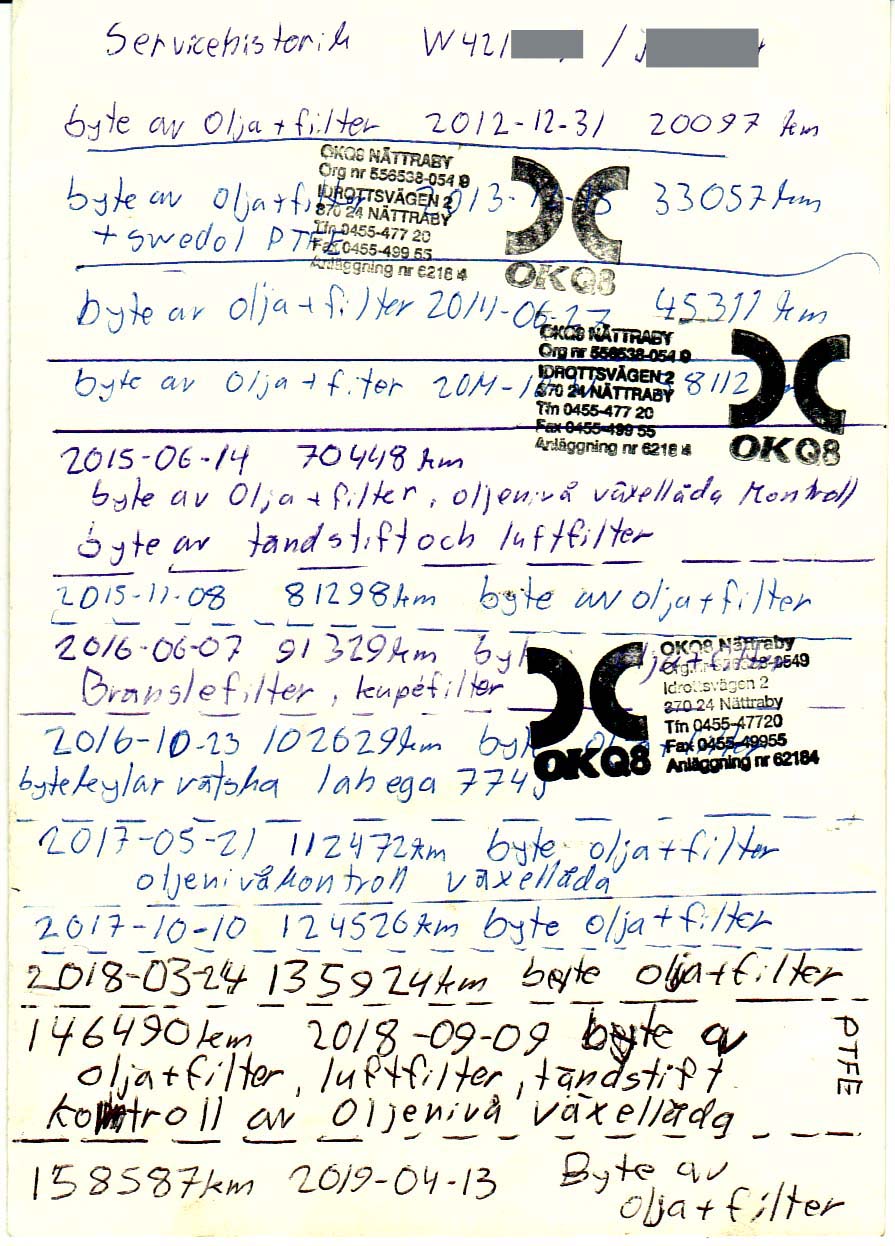 Servicehistorik W421 /
byte av olja+filter 2012-12-31 20097 km
OKQ8 NÄTTRABY
Org nr 556538-054 9
IDROTTSVÄGEN 2
370 24 NÄTTRABY
Tfn 0455-477 20
Fax 0455-499 55
Anläggning nr 6218 4
OKQ8
byte av olja+filter 2013-12- 33057 km
+ swedol PTFE
byte av olja+filter 2014-06-27 45311 km
OKQ8 NÄTTRABY
Org nr 556538-054 9
IDROTTSVÄGEN 2
370 24 NÄTTRABY
Tfn 0455-477 20
Fax 0455-499 55
Anläggning nr 6218 4
OKQ8
byte av olja+fiter 2014-1 8112
2015-06-14 70448 km
byte av olja+filter, oljenivå växellåda kontroll
byte av tändstift och luftfilter
2015-11-08 81298km byte av olja+filter
2016-06-07 91329km byte olja+filter
Bränslefilter, kupéfilter
OKQ8
OKQ8 Nättraby
Org.nr 556538-0549
Idrottsvägen 2
370 24 Nättraby
Tfn 0455-47720
Fax 0455-49955
Anläggning nr 62184
2016-10-23 102629km byte olja+filter
byte kylar vätska lahega 774
2017-05-21 112472km byte olja+filter
oljenivåkontroll växellåda
2017-10-10 124526km byte olja+filter
2018-03-24 135924km byte olja+filter
146490km 2018-09-09 byte av
olja+filter, luftfilter, tändstift
kontroll av Oljenivå växellåda
PTFE
158587km 2019-04-13 Byte av
olja+filter